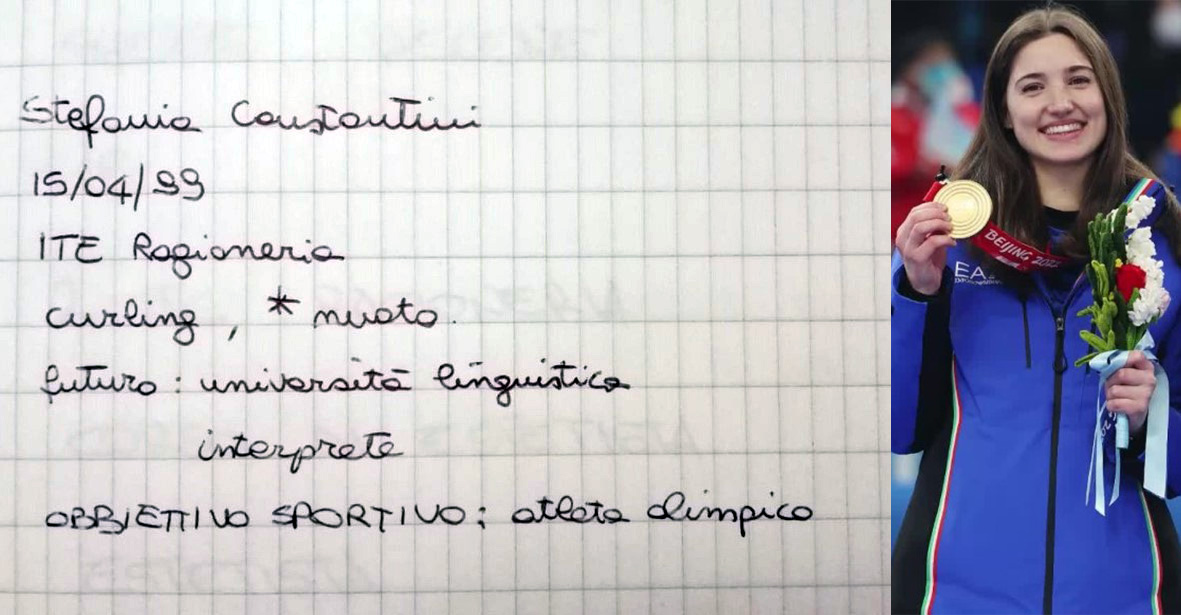 Stefania Constantini
15/04/99
ITE Ragioneria
curling, * nuoto.
futuro: università linguistica
interprete
OBBIETTIVO SPORTIVO: atleta olimpico
BEIJING 2022
EA